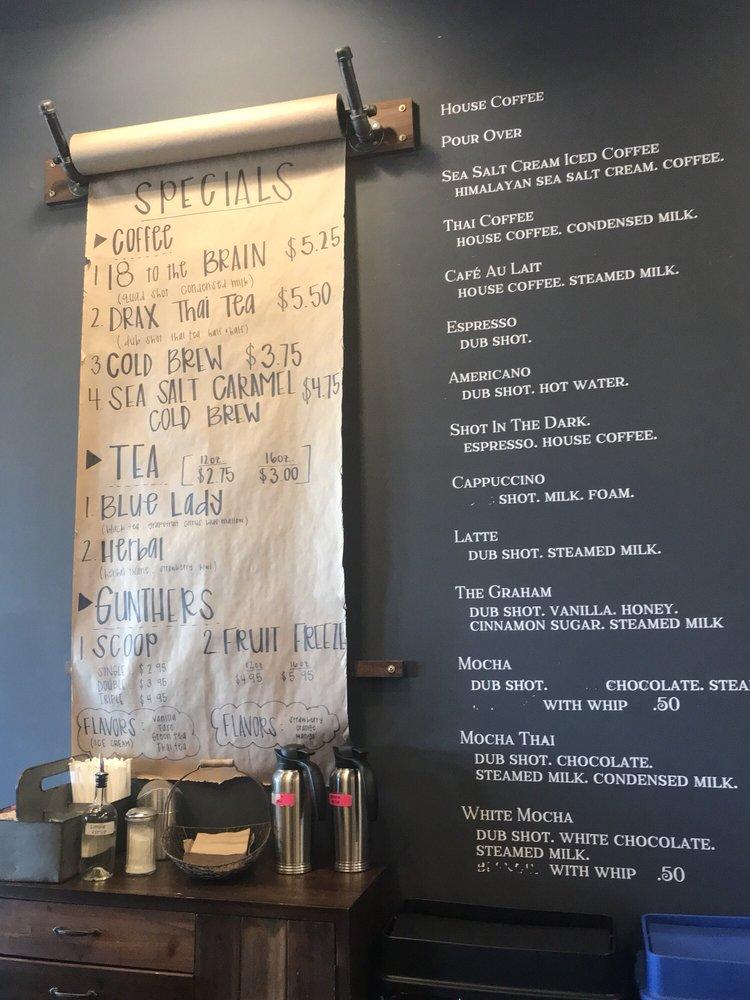 SPECIALS
COFFEE
1 18 to the BRAIN $5.25
(quad shot condensed milk)
2. DRAX Thai Tea $5.50
(dub shot thai tea half & half)
3 COLD BREW $3.75
4 SEA SALT CARAMEL $4.75
COLD BREW
TEA [12oz 16oz]
$2.75 $3.00
1. BLUE LADY
(black tea grapefruit citrus blue mallow)
2. Herbal
GUNTHERS
1 SCOOP 2 FRUIT FREEZE
SINGLE $2.95 12oz 16oz
DOUBLE $3.95 $4.95 $5.95
TRIPLE $4.95
FLAVORS (ICE CREAM) Vanilla
Taro
Green tea
Thai tea
FLAVORS Strawberry
Orange
Mango
House Coffee
Pour Over
Sea Salt Cream Iced Coffee
Himalayan sea salt cream. Coffee.
Thai Coffee
House coffee. Condensed milk.
Café Au Lait
House coffee. Steamed milk.
Espresso
Dub shot.
Americano
Dub shot. Hot water.
Shot In The Dark.
Espresso. House coffee.
Cappuccino
Shot. Milk. Foam.
Latte
Dub shot. Steamed milk.
The Graham
Dub shot. Vanilla. Honey.
Cinnamon sugar. Steamed milk
Mocha
Dub shot. Chocolate. Stea
With whip .50
Mocha Thai
Dub shot. Chocolate.
Steamed milk. Condensed milk.
White Mocha
Dub shot. White chocolate.
Steamed milk.
With whip .50